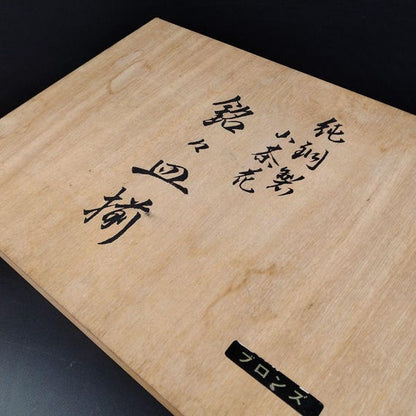 純銅製
山茶花
銘々皿揃
ブロンズ